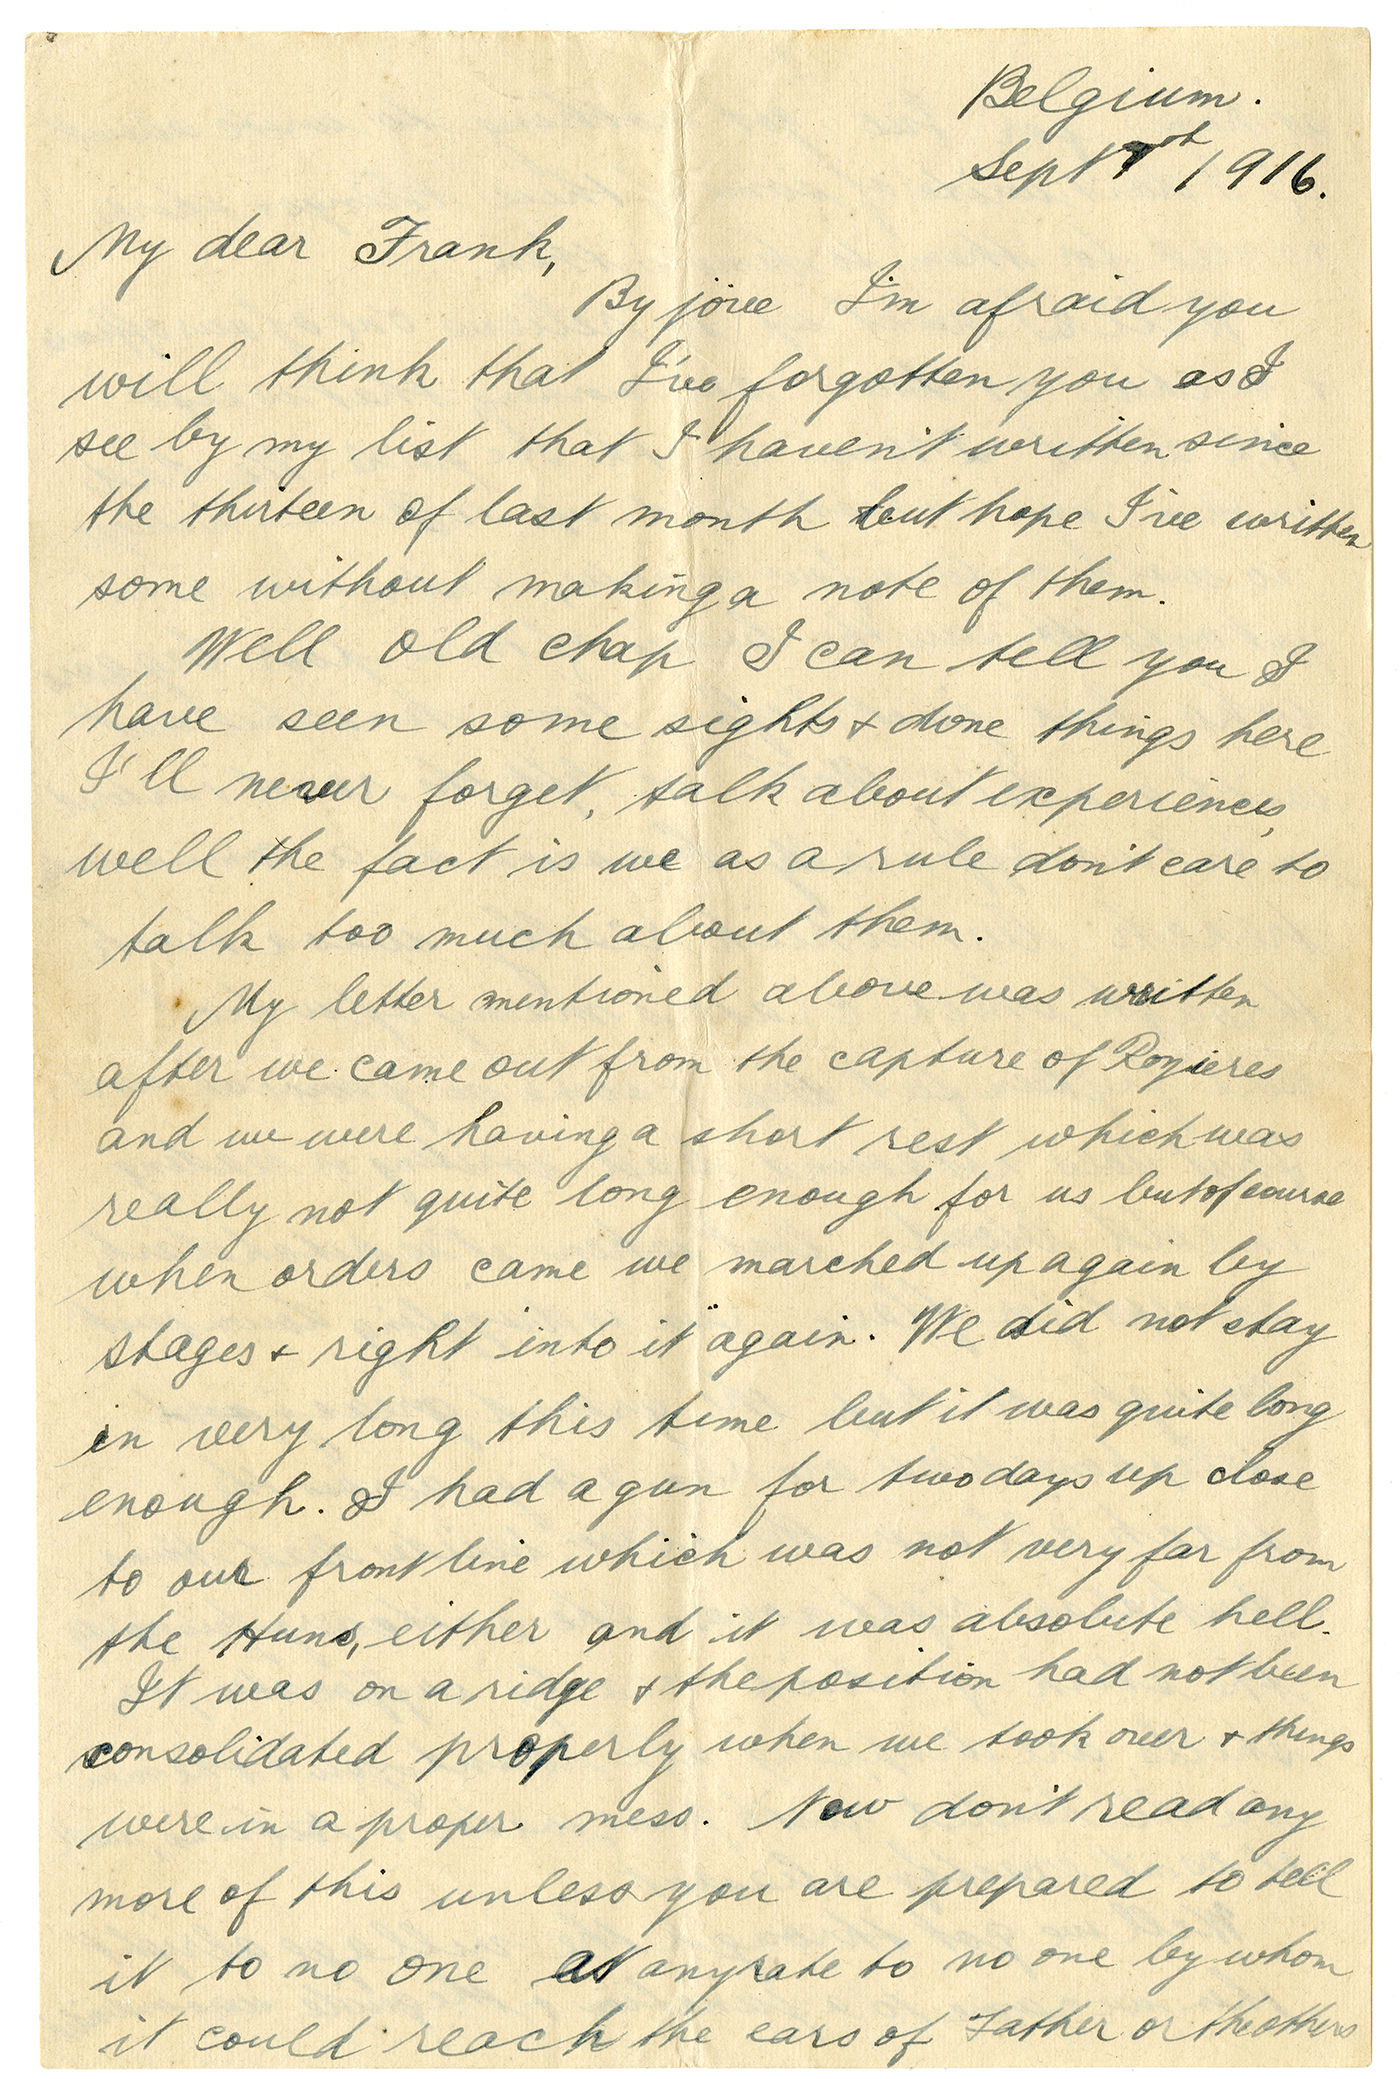 Belgium.
Sept 7th 1916.
My dear Frank,
By jove I'm afraid you
will think that I've forgotten you as I
see by my list that I haven't written since
the thirteen of last month but hope I've written
some without making a note of them.
Well old chap I can tell you I
have seen some sights & done things here
I'll never forget, talk about experiences,
well the fact is we as a rule don't care to
talk too much about them.
My letter mentioned above was written
after we came out from the capture of Pozieres
and we were having a short rest which was
really not quite long enough for us but of course
when orders came we marched up again by
stages & right into it again. We did not stay
in very long this time but it was quite long
enough. I had a gun for two days up close
to our front line which was not very far from
the Huns, either and it was absolute hell.
It was on a ridge & the position had not been
consolidated properly when we took over & things
were in a proper mess. Now don't read any
more of this unless you are prepared to tell
it to no one at anyrate to no one by whom
it could reach the ears of Father or the others